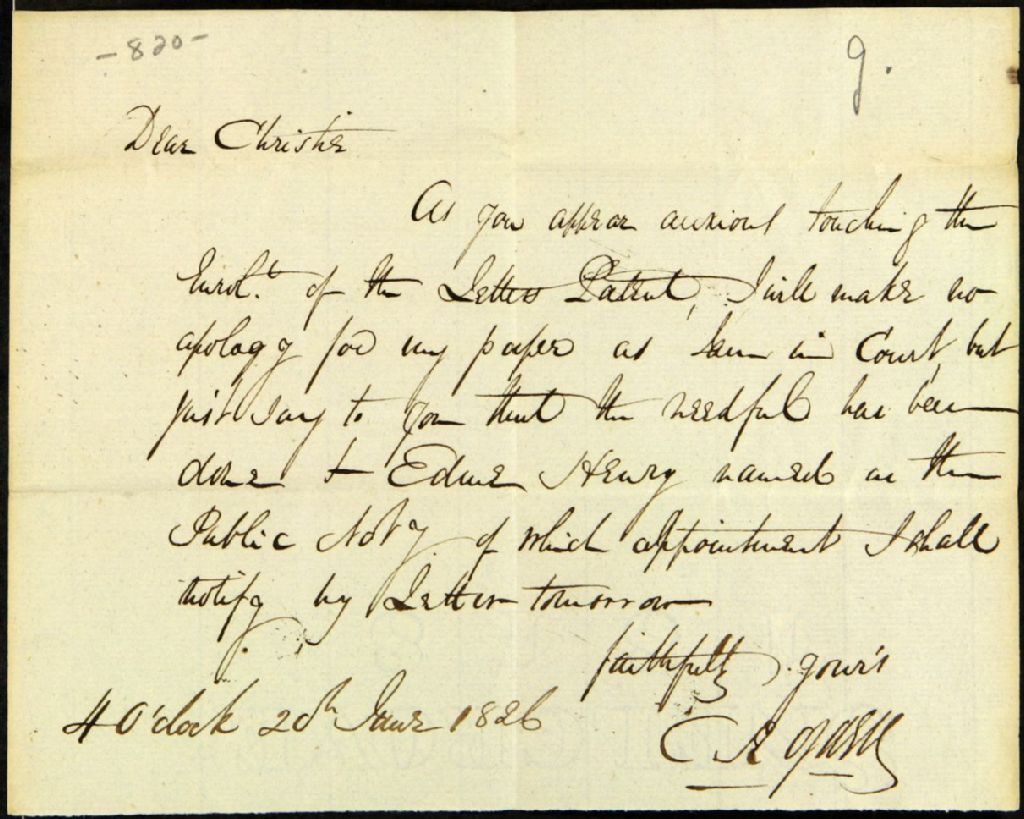 - 820 -
9.
Dear Christie
As you appear anxious touching the
Enrol.t of the Letters Patent, I will make no
apology for my paper as I am in Court, but
just say to you that the needful has been
done & Edme Henry named as the
Public Noty of which appointment I shall
notify by Letter tomorrow
faithfully your's
4 O'clock 20th June 1826
C R Ogden